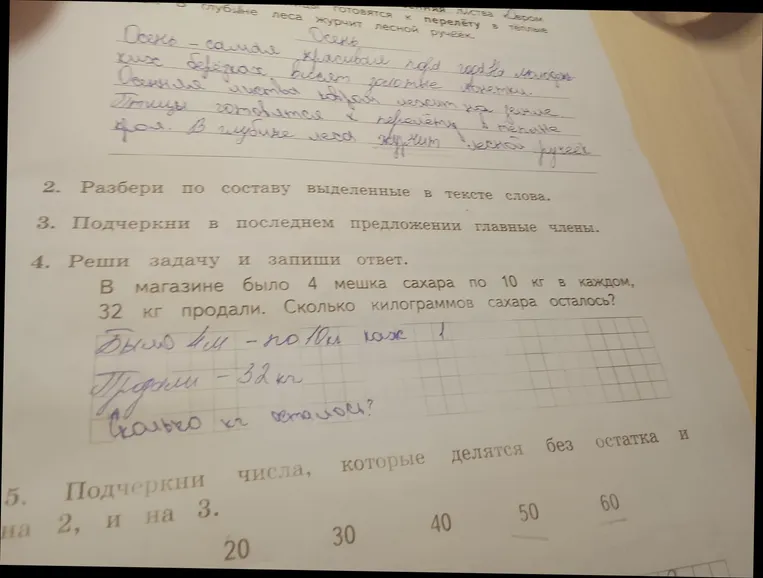 готовятся к перелёту в тёплые
В глубине леса журчит лесной ручеёк.
Осень
Осень – самая красивая пора года. На
ких берёзках висят золотые
Осенняя листва ковром лежит на земле.
Птицы готовятся к перелёту в тёплые
края. В глубине леса журчит лесной ручеёк
2. Разбери по составу выделенные в тексте слова.
3. Подчеркни в последнем предложении главные члены.
4. Реши задачу и запиши ответ.
В магазине было 4 мешка сахара по 10 кг в каждом,
32 кг продали. Сколько килограммов сахара осталось?
Было 4м – по 10кг каж
Продали – 32 кг
Сколько кг осталось?
5. Подчеркни числа, которые делятся без остатка и
на 2, и на 3.
20 30 40 50 60